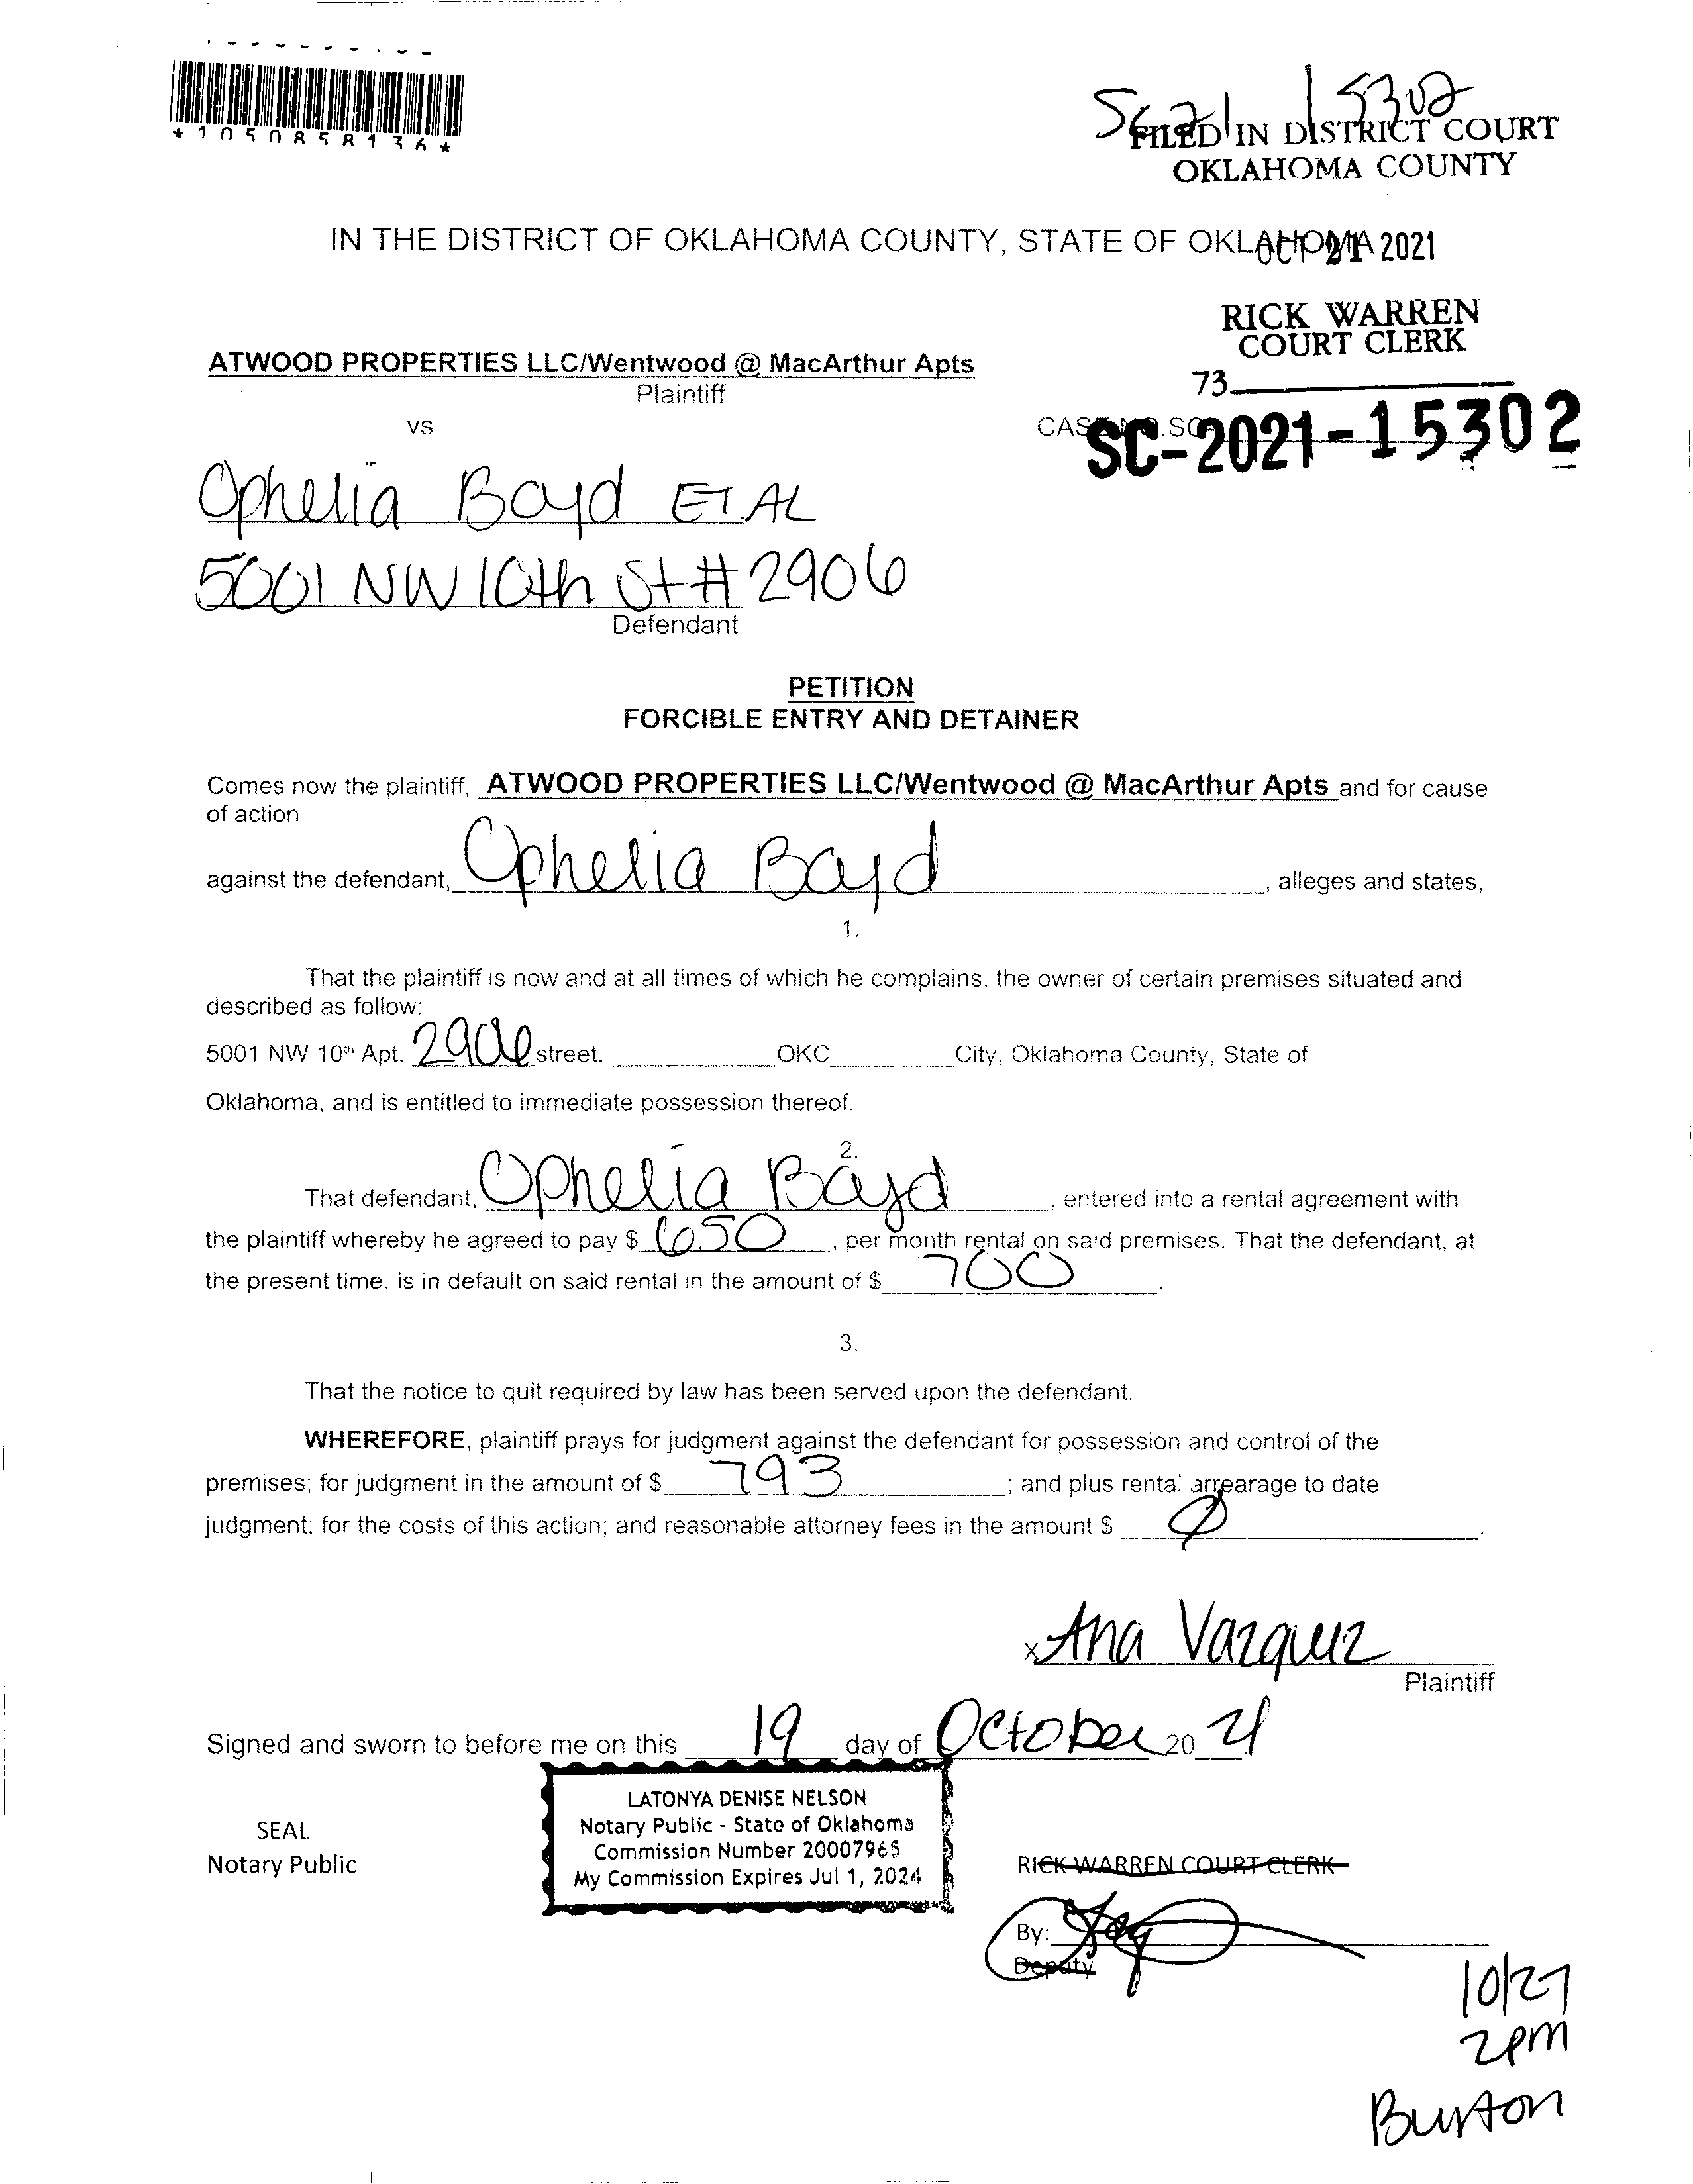 *1050858136*
SC 21 15302
FILED IN DISTRICT COURT
OKLAHOMA COUNTY
IN THE DISTRICT OF OKLAHOMA COUNTY, STATE OF OKLAHOMA
OCT 21 2021
RICK WARREN
COURT CLERK
73
ATWOOD PROPERTIES LLC/Wentwood @ MacArthur Apts
Plaintiff
vs
SC-2021-15302
Ophelia Boyd ET AL
5001 NW 10th St # 2906
Defendant
PETITION
FORCIBLE ENTRY AND DETAINER
Comes now the plaintiff, ATWOOD PROPERTIES LLC/Wentwood @ MacArthur Apts and for cause
of action
against the defendant, Ophelia Boyd, alleges and states,
1.
That the plaintiff is now and at all times of which he complains, the owner of certain premises situated and
described as follow:
5001 NW 10th Apt. 2906 street. OKC City, Oklahoma County, State of
Oklahoma, and is entitled to immediate possession thereof.
2.
That defendant, Ophelia Boyd, entered into a rental agreement with
the plaintiff whereby he agreed to pay $ 650, per month rental on said premises. That the defendant, at
the present time, is in default on said rental in the amount of $ 700.
3.
That the notice to quit required by law has been served upon the defendant.
WHEREFORE, plaintiff prays for judgment against the defendant for possession and control of the
premises; for judgment in the amount of $ 793; and plus rental arrearage to date
judgment; for the costs of this action; and reasonable attorney fees in the amount $ Ø.
x Ana Vazquez
Plaintiff
Signed and sworn to before me on this 19 day of October 20 21
LATONYA DENISE NELSON
Notary Public - State of Oklahoma
Commission Number 20007965
My Commission Expires Jul 1, 2024
SEAL
Notary Public
RICK WARREN COURT CLERK
By:
Deputy
10/27
2pm
Burton